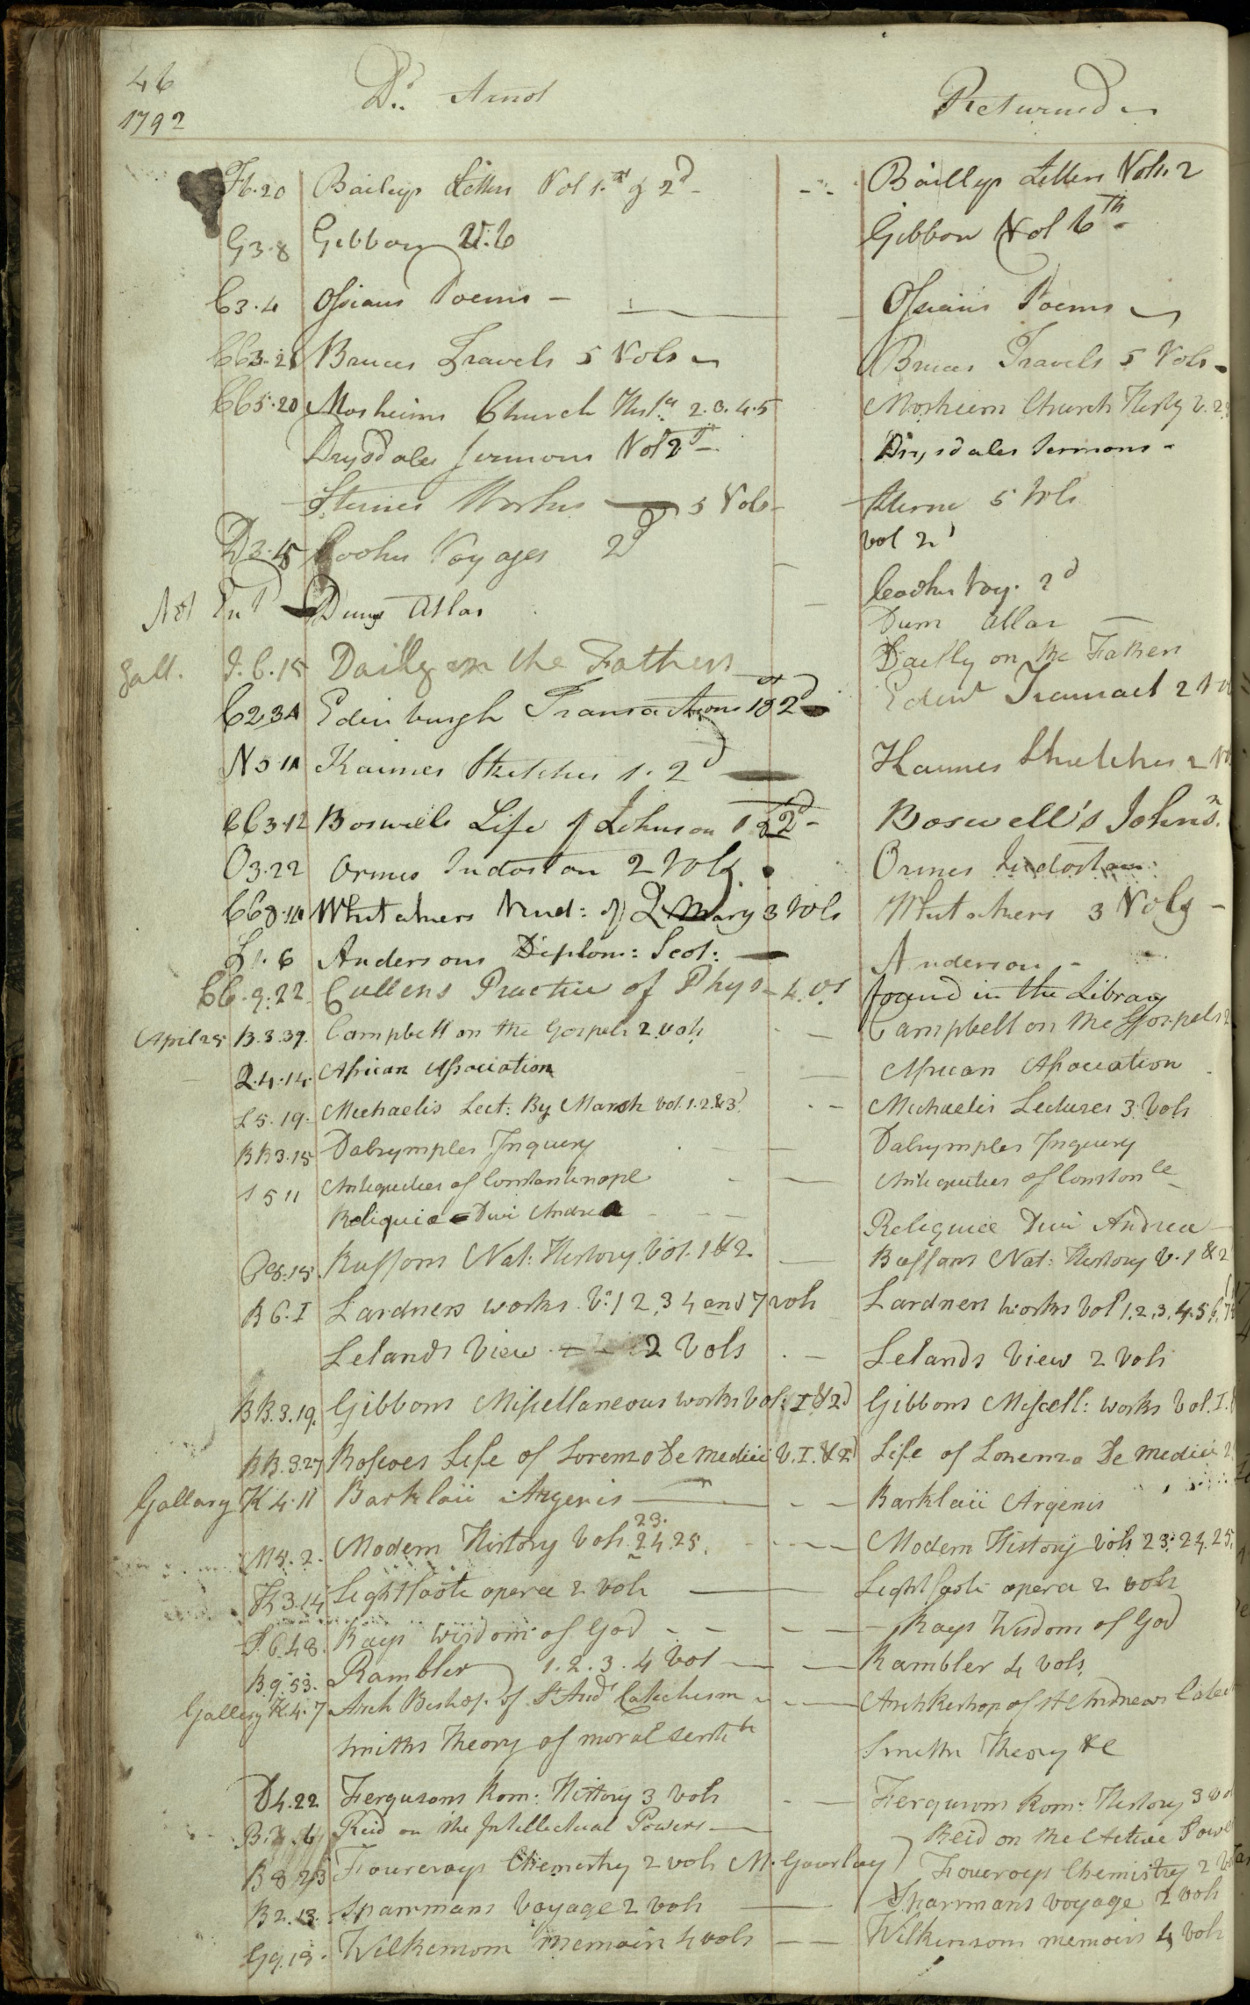 46 Dr. Arnot Returned
1792
F6.20 Baileys Letters Vol 1.st & 2d Baillys Letters Vols. 2
G3.8 Gibbon V.6 Gibbon Vol 6th
C3.4 Ossians Poems Ossians Poems
CC3.21 Bruces Travels 5 Vols Bruces Travels 5 Vols
CC5.20 Mosheims Church Histy 2.3.4.5 Mosheim Church Histy V. 2
Drysdales Sermons Vol 2d Drysdales Sermons
Sternes Works 5 Vols Sterne 5 Vols
vol 2d
D3.15 Cooks Voyages 2d Cooks Voy. 2d
Not Entd Duns Atlas Duns Atlas
Gall. I.6.15 Dailly on the Fathers Dailly on the Fathers
C2.34 Edinburgh Transactions 1st 2d Edinr Transact 2 Vol
N5.11 Kaimes Sketches 1. 2d Kaimes Sketches 2 Vo
CC3.12 Boswells Life of Johnson 1 & 2d Boswell's Johnsn.
O3.22 Ormes Indostan 2 Vols Ormes Indostan
CC8.10 Whitakers Vind: of Q Mary 3 Vols Whitakers 3 Vols
L1.6 Andersons Diplom: Scot: Anderson
CC.9.22 Cullens Practice of Phys 4. Vs found in the Library
April 25 B.3.39. Campbell on the Gospels 2 vols Campbell on the Gospels 2
Q.4.14. African Association African Association
L5.19. Michaelis Lect: By Marsh vol. 1.2.&3d Michaelis Lectures 3 Vols
BB3.15 Dalrymples Inquery Dalrymples Inquery
S 5 11 Antiquities of Constantinople Antiquities of Constonle
Reliquiæ Divi Andreæ Reliquiæ Divi Andreæ
CC8.15 Buffons Nat: History. Vol. 1 & 2. Buffons Nat: History V. 1 & 2
B6.I Lardners works. Vs. 1 2, 3 4 and 7 vols Lardners works Vol 1.2.3.4.5.6.7
Lelands View 2 Vols Lelands View 2 Vols
BB.3.19. Gibbons Miscellaneous works Vol: I & 2d Gibbons Miscell: works Vol. I. &
BB.3.27 Roscoes Life of Lorenzo De Medici V. I. & 2d Life of Lorenzo De Medici 2
Gallary K.4.11 Barklaii Argenis Barklaii Argenis
M4.2. Modern History Vols. 23. 24. 25. Modern History Vols 23. 24. 25.
K3.14 Lightfooti opera 2 vols Lightfooti opera 2 vols
P.6.48. Rays Wisdom of God Rays Wisdom of God
B9.53. Rambler 1.2.3.4 Vol Rambler 4 vols.
Gallery K.4.7 Arch Bishop of St Ands Catechism Archbishop of St Andrews Catec
Smiths Theory of moral sentts Smiths Theory &c
D4.22 Fergusons Rom: History 3 vols Fergusons Rom: History 3 vol
Reid on the Intellectual Powers Reid on the Active Powe
B8.23 Fourcroys Chemistry 2 vols M. Gourlay Fourcroys Chemistry 2 V
B2.13. Sparrmans Voyage 2 vols Sparrmans voyage 2 vols
G9.13. Wilkinsons memoirs 4 vols Wilkinsons memoirs 4 vols